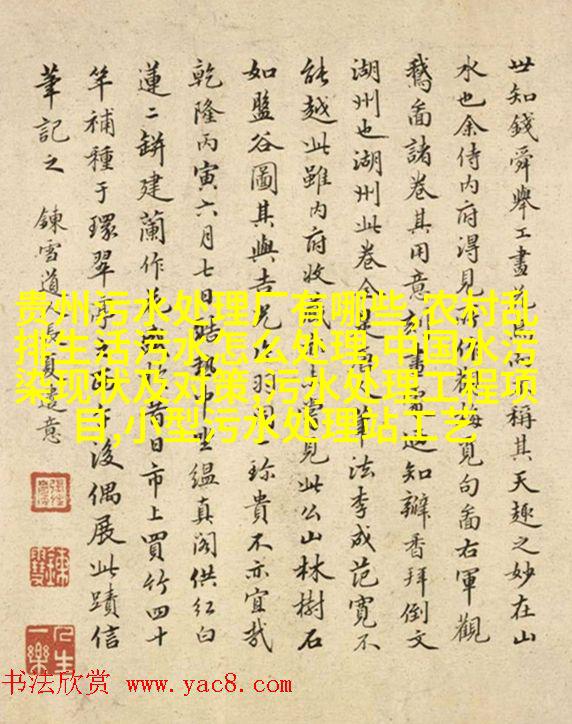 世知錢舜舉工畫花鳥稱其天趣之妙在山
水也余侍內府得見所作梅覓句畵右軍觀
鵝畵諸卷其用意刻畫知瓣香拜倒文
湖州也湖州此卷筆法李成范寬不
能越此雖內府收見此公山林樹石
如盤谷圖其與吉光片羽同珍貴不亦宜哉
乾隆丙寅六月七日中坐縕真閣供紅白
蓮二缾建蘭作花昔日市上買竹四十
竿補種于環翠亭之後偶展此蹟信
筆記之 鍊雪道人長夏意
人生一樂
贵州污水处理厂有哪些,农村乱
排生活污水,怎么处理,中国水污
染现状及对策,污水处理工程项
目,小型污水处理站工艺
书法欣赏 www.yac8.com